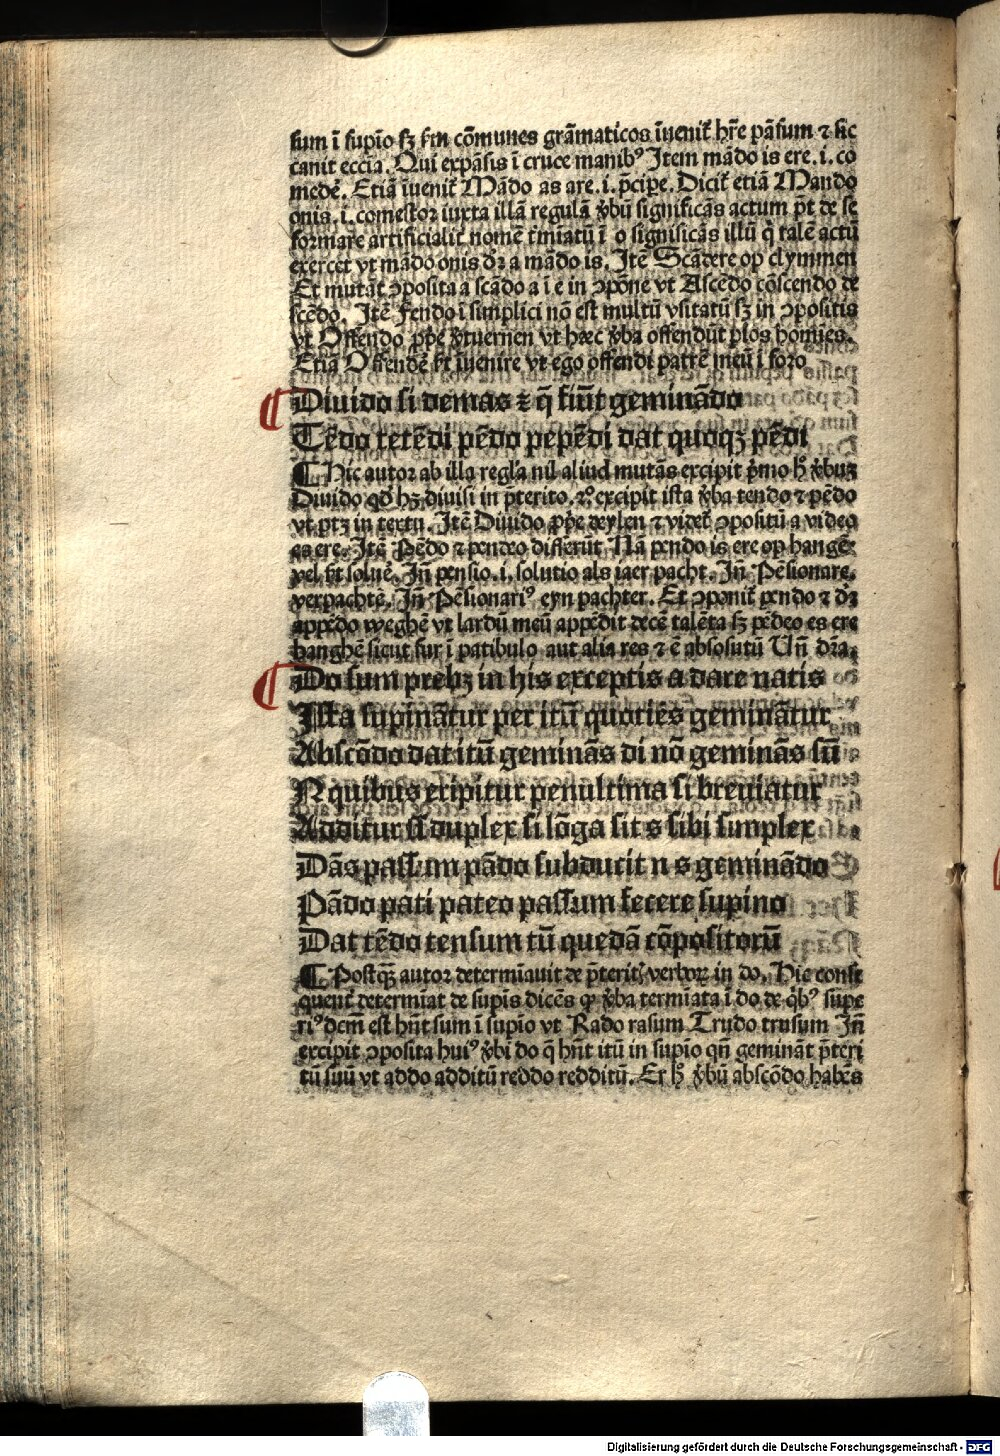 sum ī supīo sꝫ ẜm cōmunes grāmaticos īuenit̄ hr̄e pāsum ⁊ sic
canit eccīa. Qui expāsis ī cruce manibꝰ Item mādo is ere .i. co
medē. Etiā īuenit̄ Mādo as are .i. p̄cipe. Dicit̄ etiā Mando
onis .i. comestor iuxta illā regulā v̄bū significās actum pt̄ de se
formare artificialit̄ nomē t̄miatū ī o significās illū q̄ talē actū
exercet vt mādo onis dr̄ a mādo is. Itē Scādere op clymmen
Et mutāt ꝯposita a scādo a ī e in ꝯpōne vt Ascēdo cōscendo de
scēdo. Itē fendo ī simplici nō est multū vsitatū sꝫ in ꝯpositis
vt Offendo ꝓpē v̄tuernen vt hec v̄ba offendūt plos homīes.
Etiā Offendē ē īuenire vt ego offendi patrē meū ī foro
Diuido si demas ⁊ q̄ fiūt gemināado
Tēdo tetēdi pēdo pepēdi dat quoqꝫ pēdi
¶ Hic autor ab illa regla nil aliud mutās excipit p̄mo h̄ v̄buꝫ
Diuido qd̄ hꝫ diuisi in pterito. ⁊ excipit ista v̄ba tendo ⁊ pēdo
vt ptꝫ in textu. Itē Diuido ꝓpē deylen ⁊ videt̄ ꝯpositū a video
es ere. Itē Pēdo ⁊ pendeo differūt Nā pendo is ere op hangē
vel ē soluē. Iñ pensio .i. solutio als iaer pacht. Iñ Pēsionare.
verpachtē. Iñ Pēsionariꝰ eyn pachter. Et ꝯponit̄ pendo ⁊ dr̄
appēdo weghē vt lardū meū appēdit decē talēta sꝫ pēdeo es ere
hanghē sicut fur ī patibulo aut alia res ⁊ ē absolutū Uñ dr̄a.
Do sum prebꝫ in his exceptis a dare natis
Ista supināntur per itū quoties geminātur
Abscōdo dat itū geminās di nō geminās sū
N quibus eripitur penultima si breuiatur
Additur sſ duplex si lōga sit s sibi simplex
Dās passum pādo subducit n s geminādo
Pādo pati pateo passum fecere supino
Dat tēdo tensum tū quedā cōpositorū
¶ Postqꝫ autor determīauit de p̄teritꝭ verboꝝ in do. Hic conse
quent̄ determīat de supīs dicēs ꝙ v̄ba termīata ī do de q̄bꝰ supe
riꝰ dcm̄ est hn̄t sum ī supīo vt Rado rasum Trudo trusum Iñ
excipit ꝯposita huiꝰ v̄bi do q̄ hn̄t itū in supīo qn̄ gemināt p̄teri
tū suū vt addo additū reddo redditū. Et h̄ v̄bū abscōdo habēs
Digitalisierung gefördert durch die Deutsche Forschungsgemeinschaft - DFG